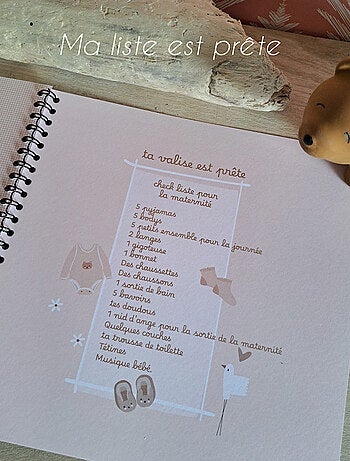 Ma liste est prête
ta valise est prête
check liste pour
la maternité
5 pyjamas
5 bodys
5 petits ensemble pour la journée
2 langes
1 gigoteuse
1 bonnet
Des chaussettes
Des chaussons
1 sortie de bain
5 bavoirs
tes doudous
1 nid d'ange pour la sortie de la maternité
Quelques couches
ta trousse de toilette
Tétines
Musique bébé